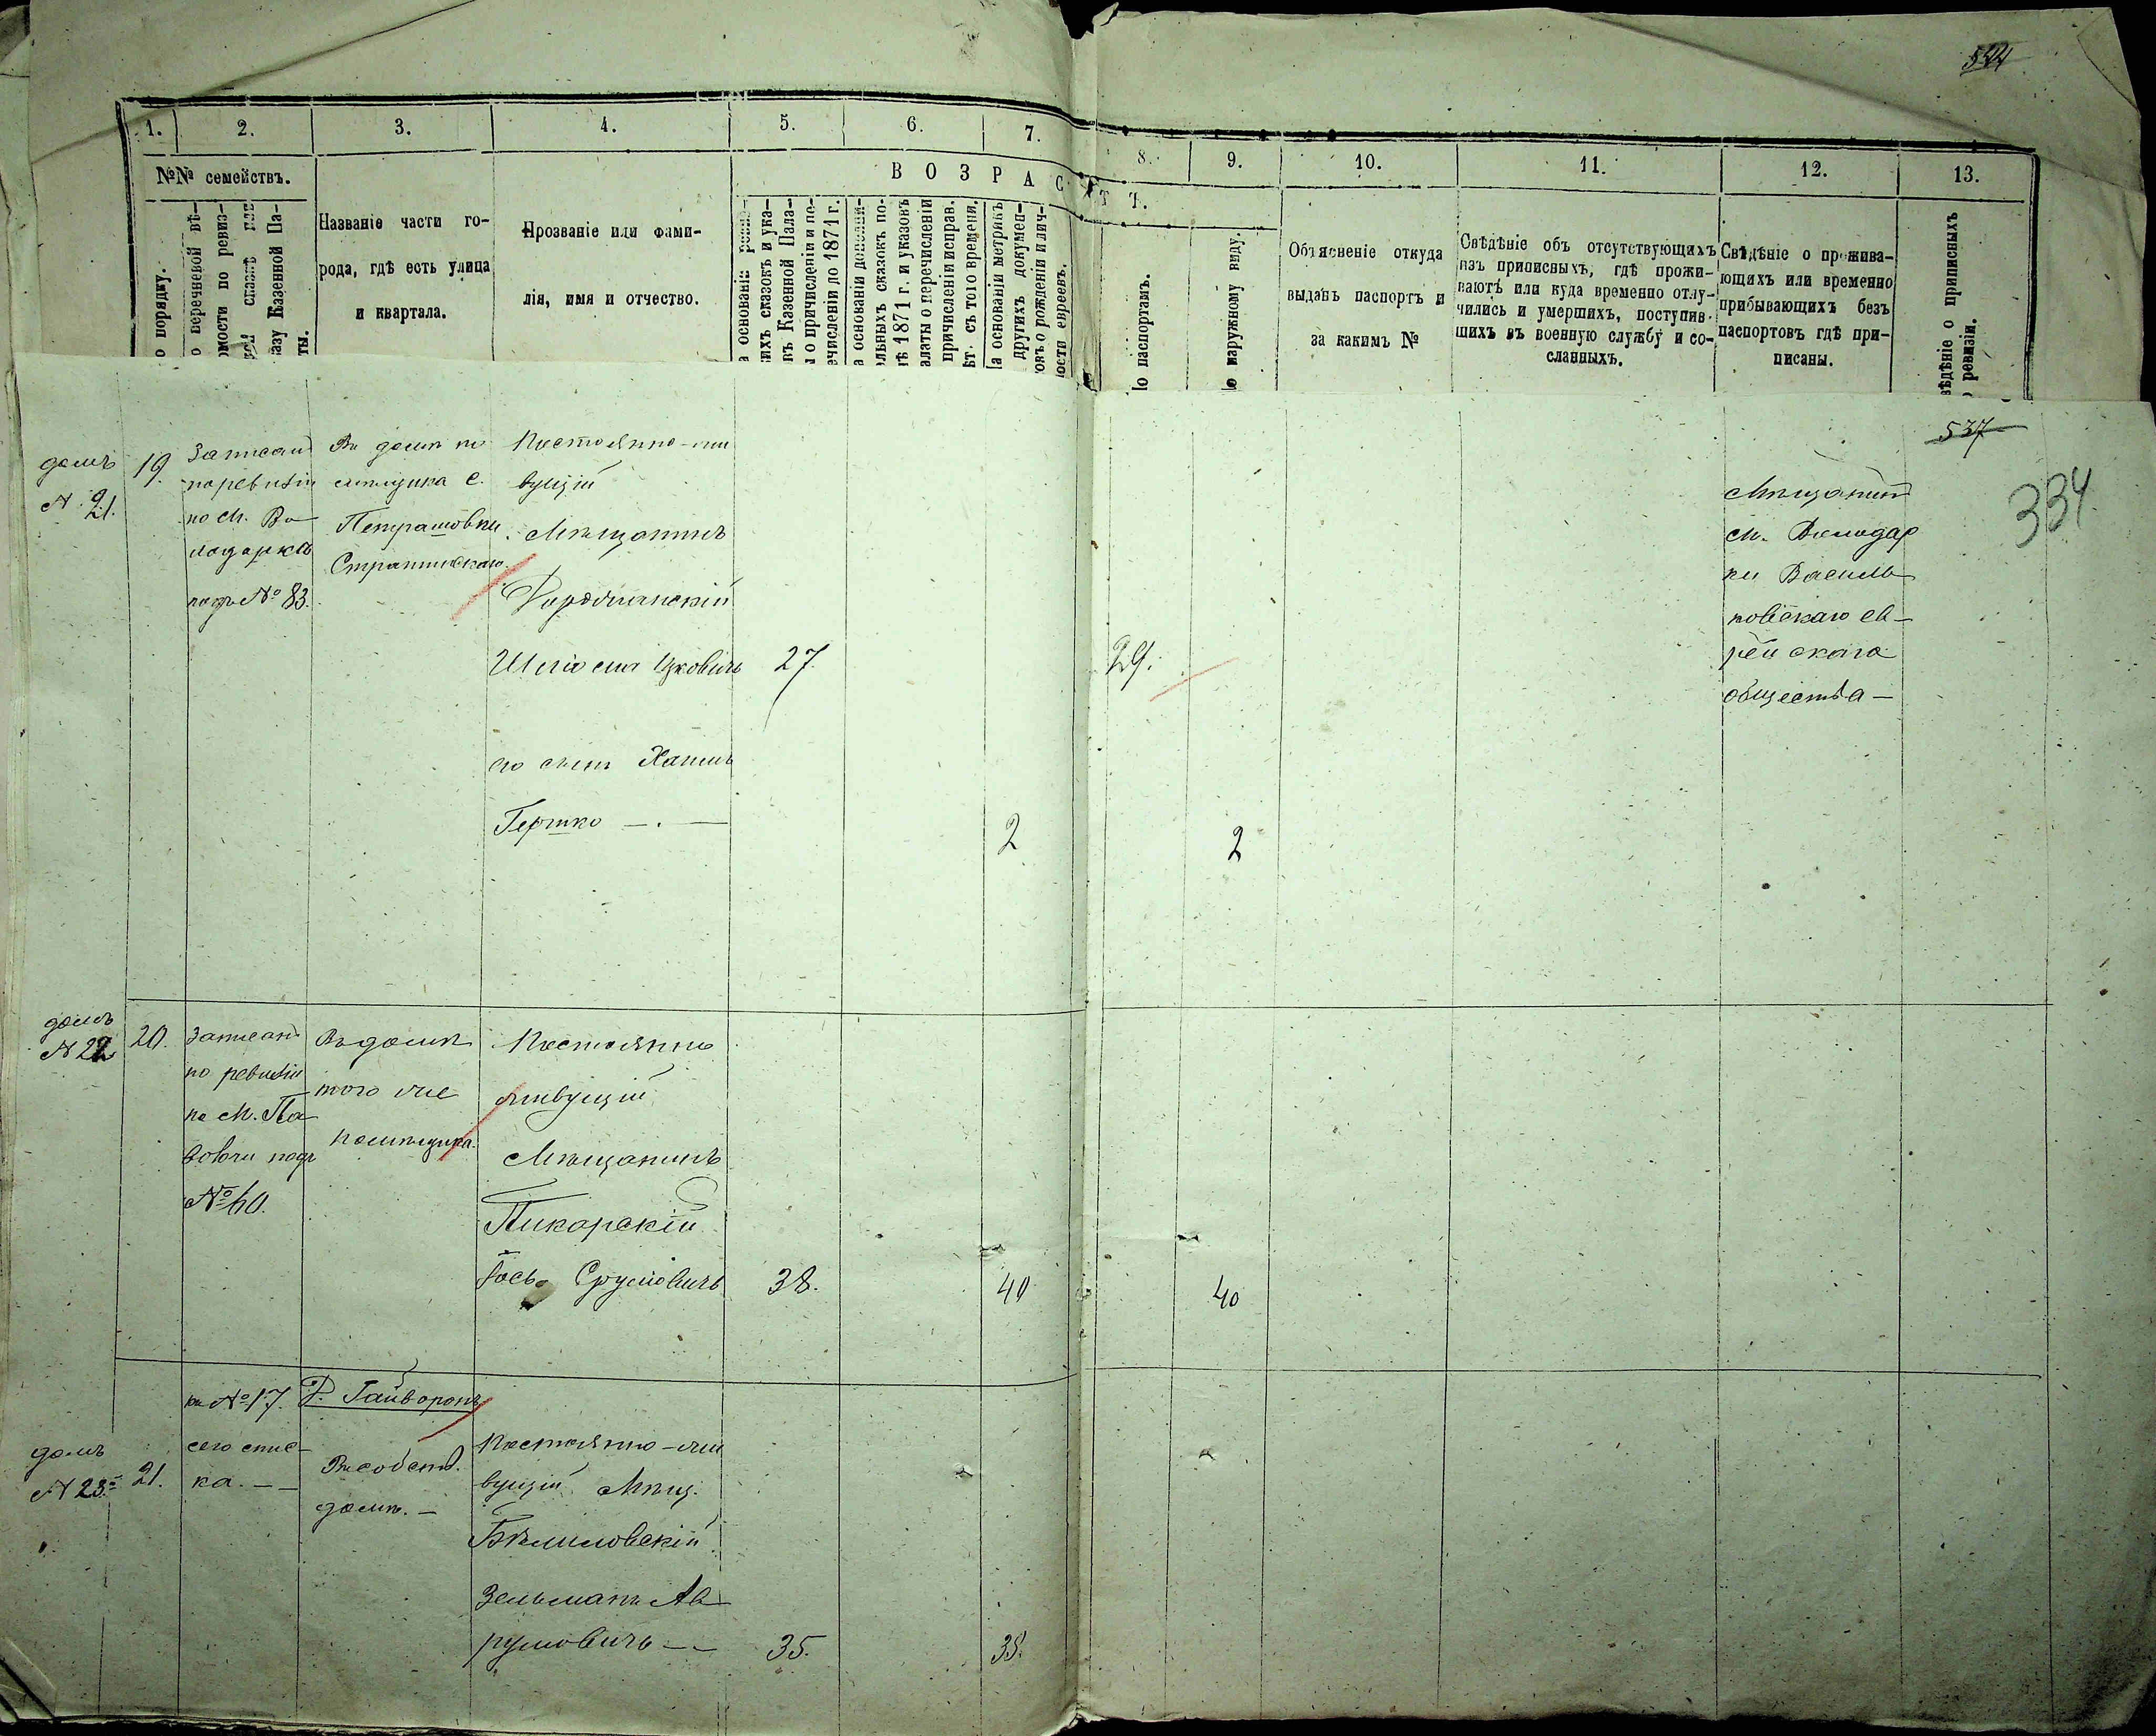 544
1.
2.
3.
4.
5.
6.
7.
8.
9.
10.
11.
12.
13.
№№ семействъ.
ВОЗРАСТЪ.
о порядку.
о перечневой вѣ-
омости по ревиз-
сказкѣ или
казу Казенной Па-
ты.
Названіе части го-
рода, гдѣ есть улица
и квартала.
Прозваніе или фами-
лія, имя и отчество.
а основаніи ревиз-
ихъ сказокъ и ука-
въ Казенной Пала-
о причисленіи и пе-
ечисленіи до 1871 г.
а основаніи дополни-
льныхъ сказокъ по-
ѣ 1871 г. и указовъ
алаты о перечисленіи
причисленіи исправ.
ѣт. съ того времени.
а основаніи метрикъ
другихъ докумен-
овъ о рожденіи и лич-
ости евреевъ.
о паспортамъ.
о наружному виду.
Объясненіе откуда
выданъ паспортъ и
за какимъ №
Свѣдѣніе объ отсутствующихъ
изъ приписныхъ, гдѣ прожи-
ваютъ или куда временно отлу-
чились и умершихъ, поступив-
шихъ въ военную службу и со-
сланныхъ.
Свѣдѣніе о прожива-
ющихъ или временно
прибывающихъ безъ
паспортовъ гдѣ при-
писаны.
вѣдѣніе о приписныхъ
ревизіи.
537
334
домъ
№ 21.
19.
Записанъ
по ревизіи
по м. Во
лодаркѣ
подъ № 83.
Въ домѣ по
мѣщика с.
Петрашовки
Постоянно-жи
вущій
Мѣщанинъ
Шліома Ицковичъ
27.
29.
его сынъ Хаимъ
Гершко — . —
2
2
Мѣщанинъ
м. Володар
ки Василь
ковскаго ев-
рейскаго
общества —
домъ
№ 22
20.
Записанъ
по ревизіи
по м. Па
волочи подъ
№ 60.
Въ домѣ
того же
помѣщика.
Постоянно
живущій
Мѣщанинъ
Пикарскій
Іось Сруловичъ
38.
40
40
къ № 17.
сего спис-
ка. — —
Д. Гайворонъ
домъ
№ 23.
21.
Въ собств.
домѣ. —
Постоянно-жи
вущій Мѣщ.
Бѣлиловскій
Зельманъ Ав
румовичъ — —
35.
38.